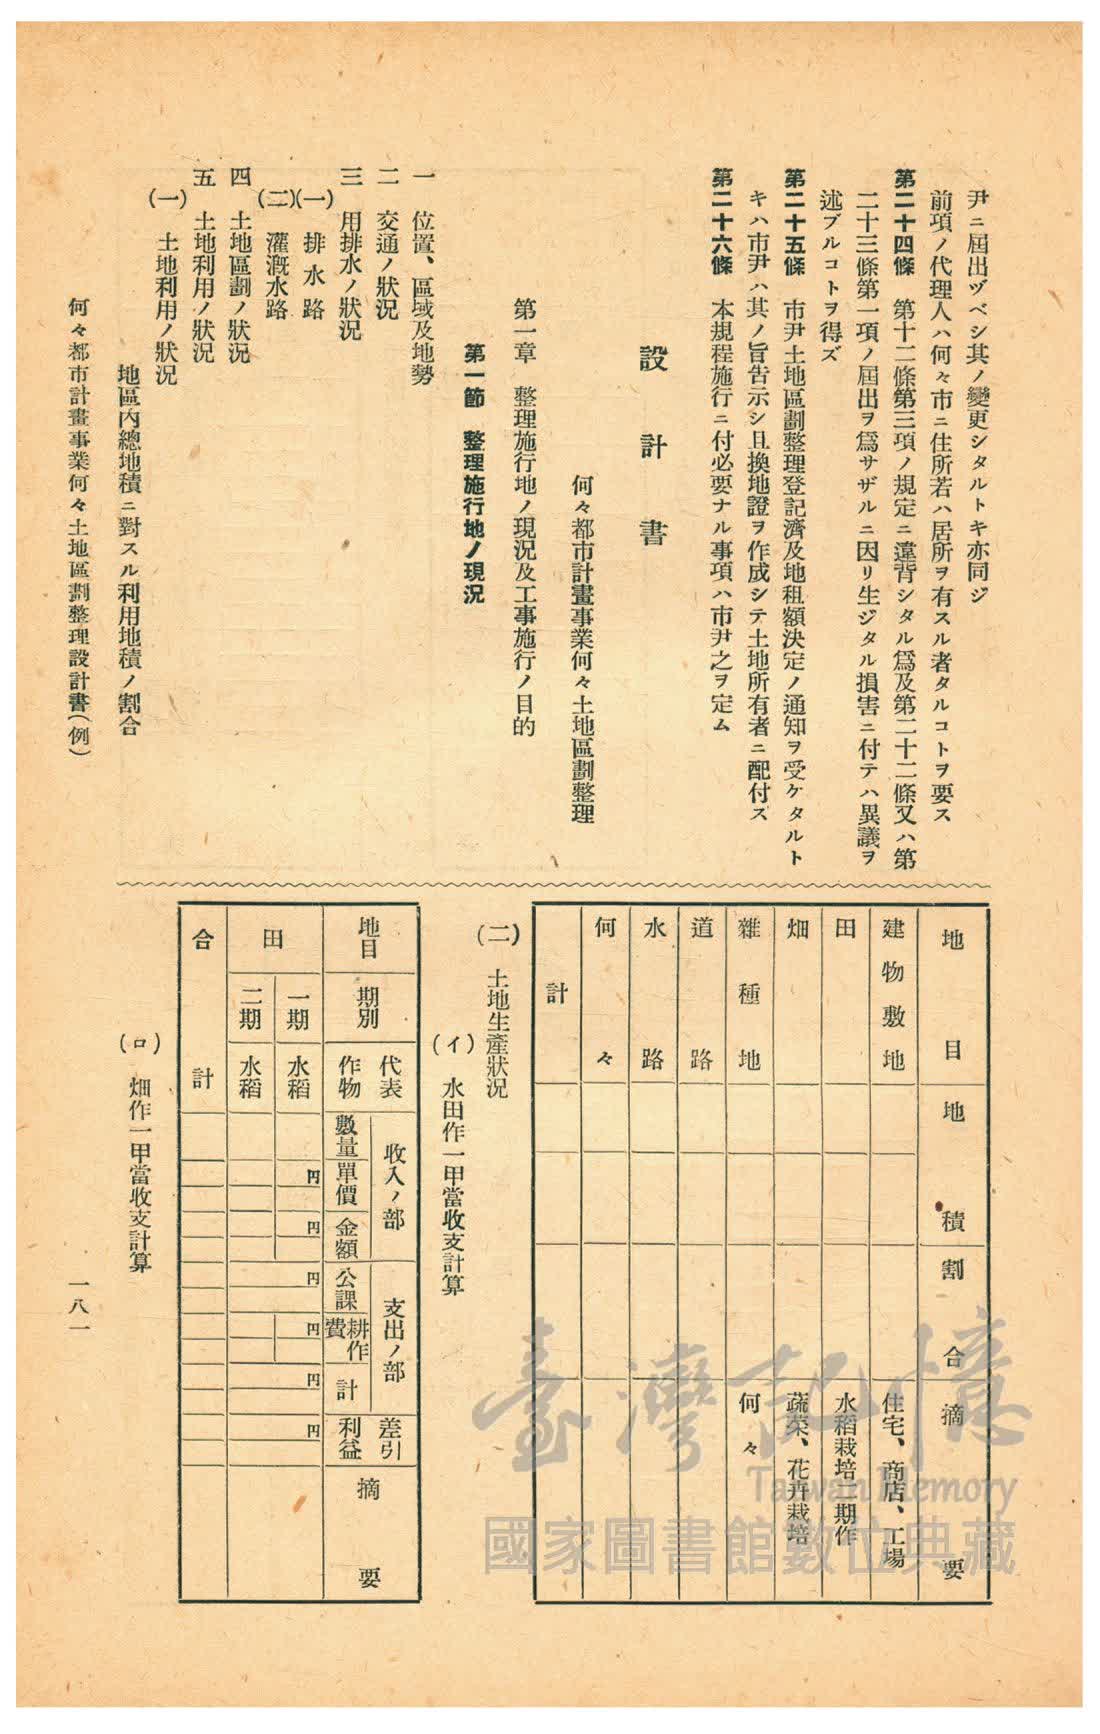 尹ニ屆出ヅベシ其ノ變更シタルトキ亦同ジ
前項ノ代理人ハ何々市ニ住所若ハ居所ヲ有スル者タルコトヲ要ス
第二十四條　第十二條第三項ノ規定ニ違背シタル爲及第二十二條又ハ第
二十三條第一項ノ屆出ヲ爲サザルニ因リ生ジタル損害ニ付テハ異議ヲ
述ブルコトヲ得ズ
第二十五條　市尹土地區劃整理登記濟及地租額決定ノ通知ヲ受ケタルト
キハ市尹ハ其ノ旨告示シ且換地證ヲ作成シテ土地所有者ニ配付ズ
第二十六條　本規程施行ニ付必要ナル事項ハ市尹之ヲ定ム
設計書
何々都市計畫事業何々土地區劃整理
第一章　整理施行地ノ現況及工事施行ノ目的
第一節　整理施行地ノ現況
一　位置、區域及地勢
二　交通ノ狀況
三　用排水ノ狀況
(一)　排水路
(二)　灌漑水路
四　土地區劃ノ狀況
五　土地利用ノ狀況
(一)　土地利用ノ狀況
地區内總地積ニ對スル利用地積ノ割合
何々都市計畫事業何々土地區劃整理設計書(例)
地目　地積　割合　摘要
建物敷地　住宅、商店、工場
田　水稻栽培二期作
畑　蔬菜、花卉栽培
雜種地　何々
道路
水路
何々
計
(二)　土地生產狀況
(イ)　水田作一甲當收支計算
地目　期別　代表作物　收入ノ部　數量　單價　金額　支出ノ部　公課　耕作費　計　差引利益　摘要
田　一期　水稻　円　円　円　円　円　円
二期　水稻
合計
(ロ)　畑作一甲當收支計算
一八一
臺灣記憶
Taiwan Memory
國家圖書館數位典藏